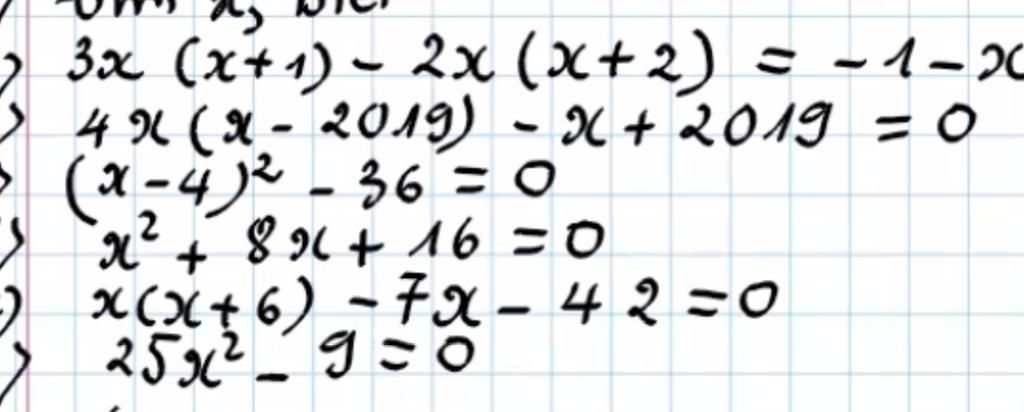 3x (x+1) - 2x (x+2) = -1-x
4x (x - 2019) - x + 2019 = 0
(x-4)² - 36 = 0
x² + 8x + 16 = 0
x(x+6) - 7x - 42 = 0
25x² - 9 = 0